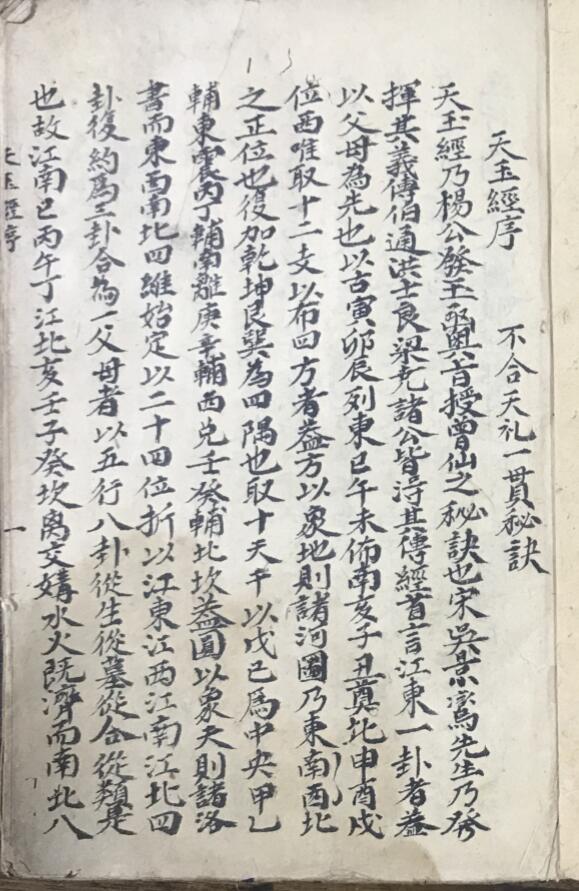 天玉經序 不合天礼一貫秘訣
天玉經乃楊公發玉函奧旨授曾仙之秘訣也宋吳景鸞先生乃發
揮其義傳伯通洪士良梁充諸公皆得其傳經首言江東一卦者蓋
以父母為先也以古寅卯辰列東巳午未佈南亥子丑奠北申酉戌
位西唯取十二支以布四方者蓋方以象地則諸河圖乃東南西北
之正位也復加乾坤艮巽為四隅也取十天干以戊己爲中央甲乙
輔東震丙丁輔南離庚辛輔西兌壬癸輔北坎蓋圓以象天則諸洛
書而東西南北四維始定以二十四位折以江東江西江南江北四
卦復約爲三卦合為一父母者以五行八卦從生從墓從合從類是
也故江南巳丙午丁江北亥壬子癸坎离交媾水火既濟而南北八
天玉經序
一